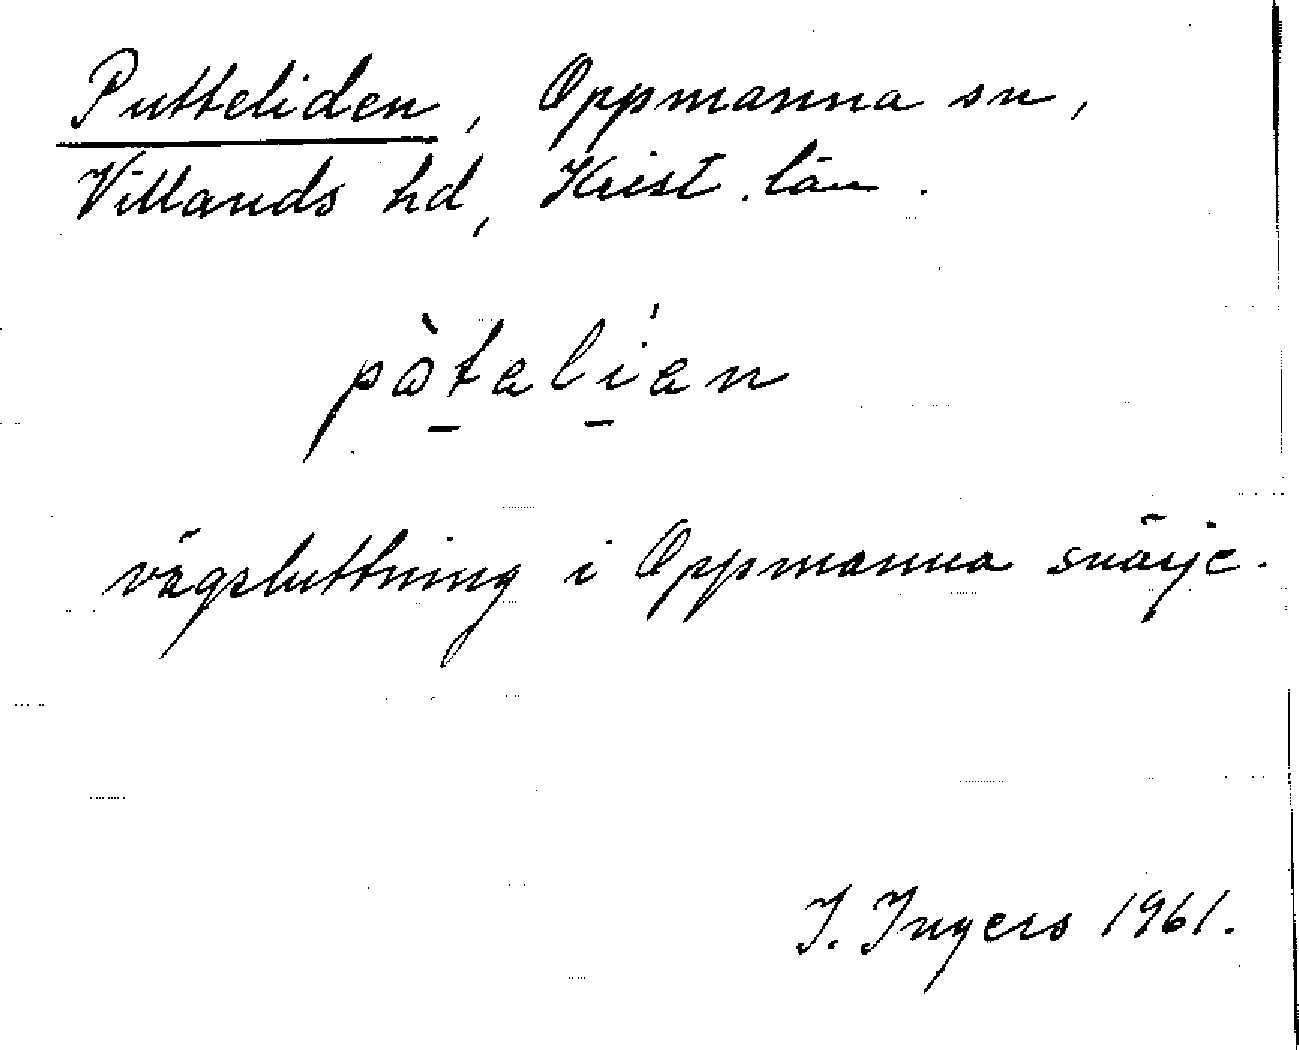 Putteliden, Oppmanna sn,
Villands hd, Krist. län.
pàtalían
vägsluttning i Oppmanna snärje.
I. Ingers 1961.